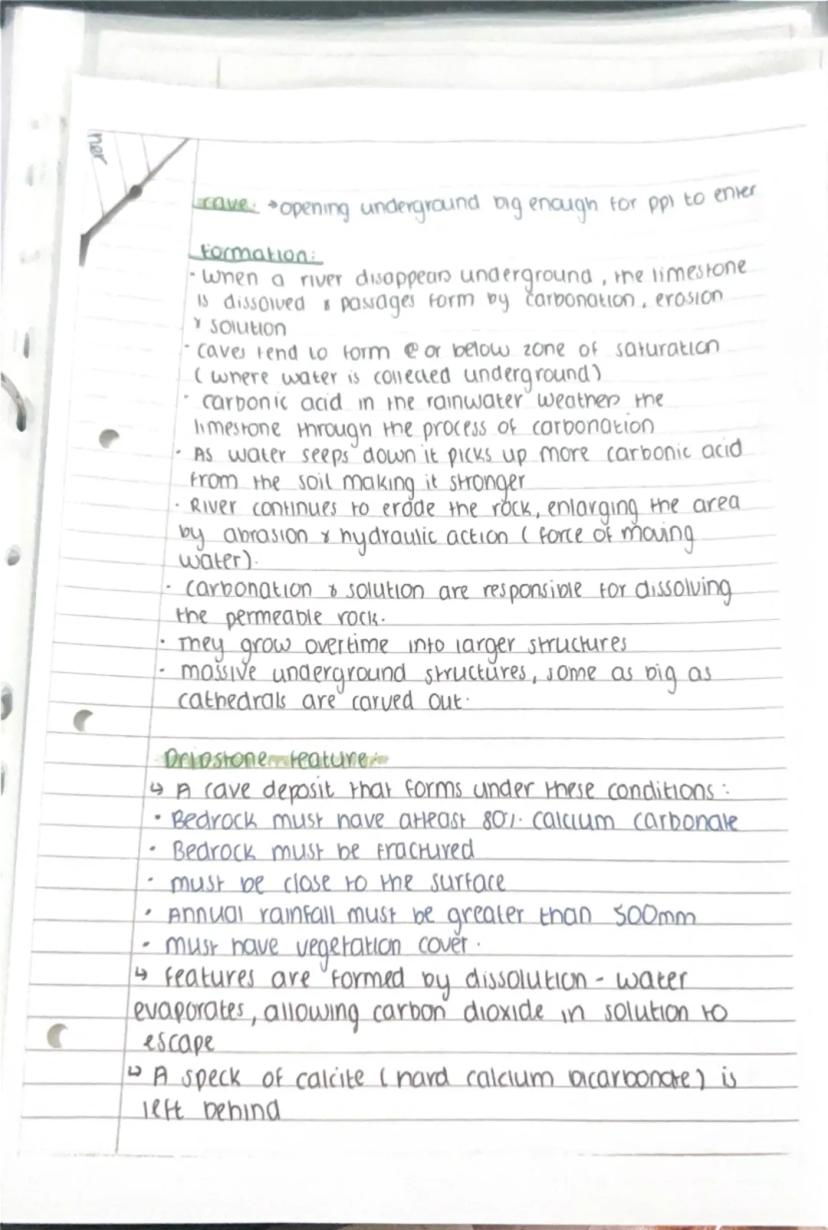 ner
cave: → opening underground big enough for ppl to enter
Formation:
· When a river disappears underground, the limestone
is dissolved & passages form by carbonation, erosion
& solution
· caves tend to form @ or below zone of saturation
(where water is collected underground)
· carbonic acid in the rainwater weathers the
limestone through the process of carbonation
· As water seeps down it picks up more carbonic acid
from the soil making it stronger
· River continues to erode the rock, enlarging the area
by abrasion & hydraulic action (force of moving
water).
· carbonation & solution are responsible for dissolving
the permeable rock.
· They grow overtime into larger structures
· massive underground structures, some as big as
cathedrals are carved out.
Dripstone feature:
↳ A cave deposit that forms under these conditions:
· Bedrock must have atleast 80% calcium carbonate
· Bedrock must be fractured
· must be close to the surface
· Annual rainfall must be greater than 500mm
· must have vegetation cover.
↳ features are formed by dissolution - water
evaporates, allowing carbon dioxide in solution to
escape
↳ A speck of calcite (hard calcium bicarbonate) is
left behind